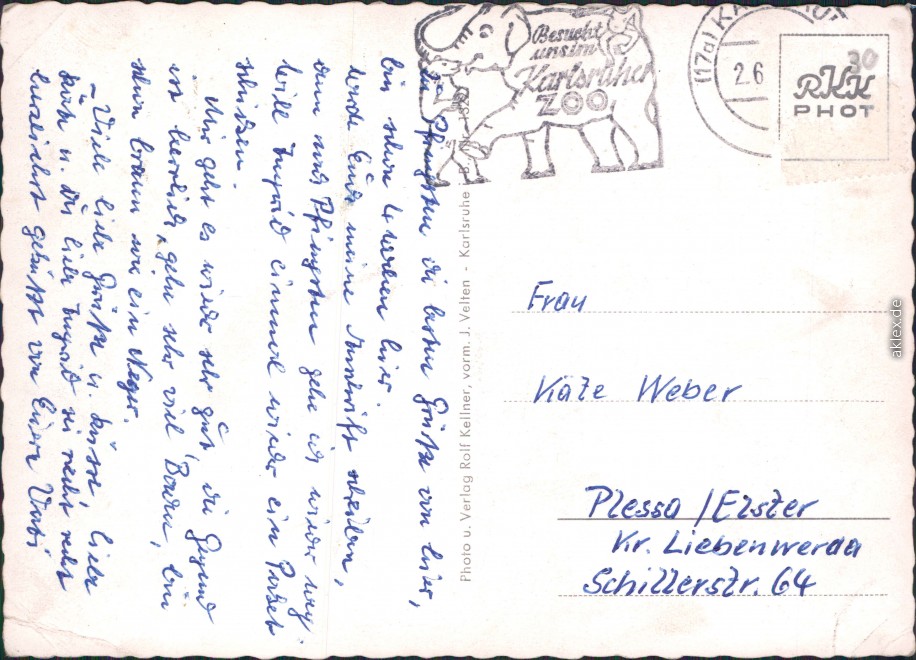 Besucht
unsern
Karlsruher
ZOO
(17a) KA
2.6
30
RKK
PHOT
Zu Pfingsten die besten Grüße von hier,
bin schon 6 Wochen hier.
werde Euch meine Anschrift schreiben,
denn nach Pfingsten gehe ich wieder weg.
Will Ingrid einmal wieder ein Paket
schicken.
Mir geht es wieder sehr gut, die Gegend
ist herrlich, gehe sehr viel Baden, bin
schon braun wie ein Neger.
– Viele liebe Grüße u. Küsse, liebe
Käte u. Du liebe Ingrid sei recht recht
herzlichst geküßt von Eurer
Photo u. Verlag Rolf Kellner, vorm. J. Velten - Karlsruhe
Frau
Käte Weber
Plessa / Elster
Kr. Liebenwerda
Schillerstr. 64
aklex.de